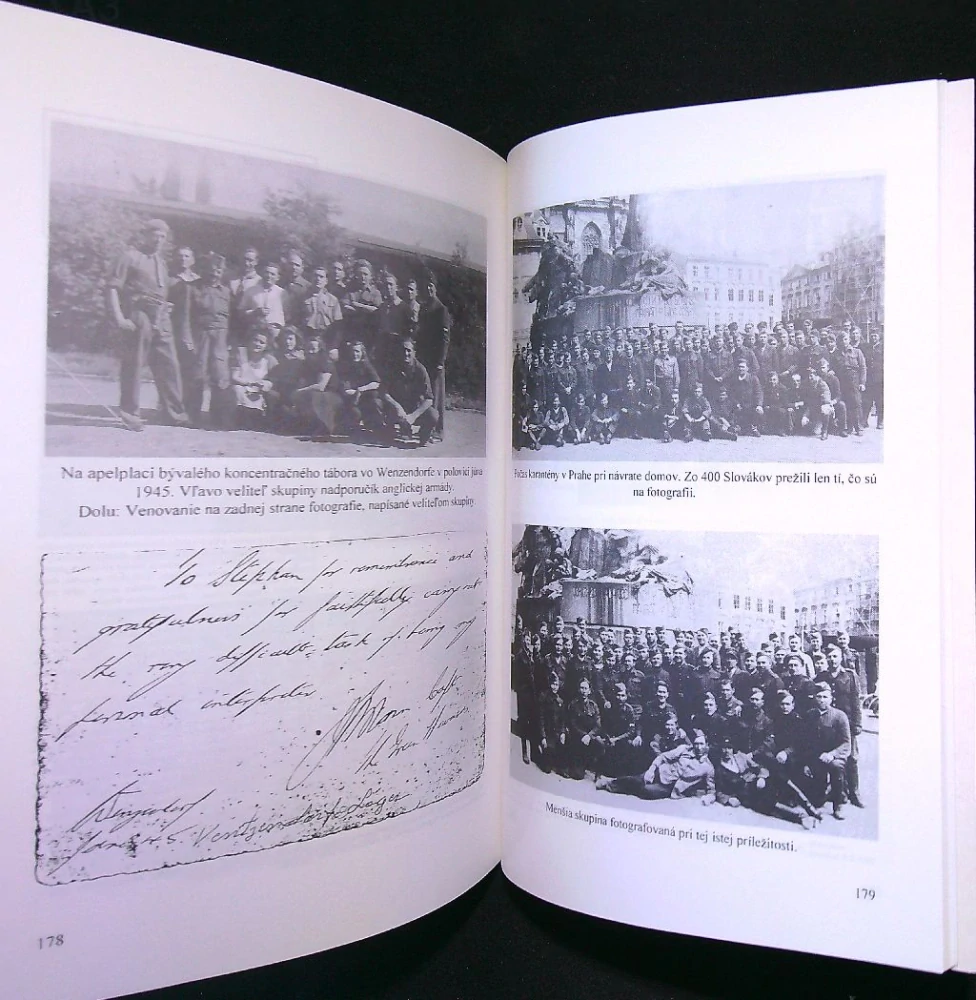 Na apelplaci bývalého koncentračného tábora vo Wenzendorfe v polovici júna
1945. Vľavo veliteľ skupiny nadporučík anglickej armády.
Dolu: Venovanie na zadnej strane fotografie, napísané veliteľom skupiny
To Stephan for remembrance and
gratefulness for faithfully carrying out
the very difficult task of being my
personal interpreter
Capt.
178
Počas karantény v Prahe pri návrate domov. Zo 400 Slovákov prežili len tí, čo sú
na fotografii.
Menšia skupina fotografovaná pri tej istej príležitosti.
179